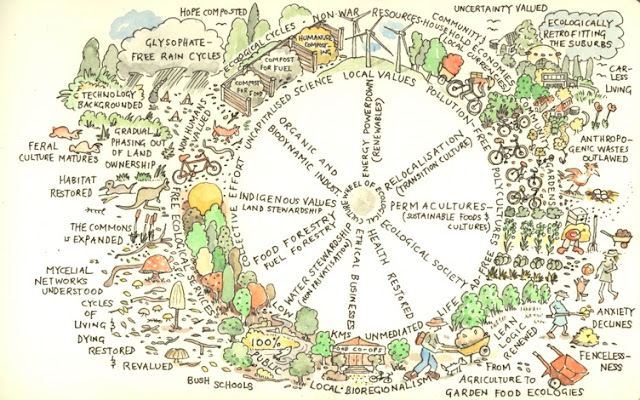 HOPE COMPOSTED
UNCERTAINTY VALUED
GLYSOPHATE-
FREE RAIN CYCLES
ECOLOGICAL CYCLES · NON-WAR RESOURCES · HOUSEHOLD ECONOMIES
COMMUNITY
LOCAL CURRENCIES
ECOLOGICALLY
RETROFITTING
THE SUBURBS
HUMANURE
COMPOST-
ING
COMPOST
FOR FUEL
COMPOST
FOR FOOD
CAR-
LESS
LIVING
TECHNOLOGY
BACKGROUNDED
NON HUMANS
UNCAPITALISED SCIENCE
LOCAL VALUES
POLLUTION-FREE
POLYCULTURES
GARDENS
FERAL
CULTURE MATURES
GRADUAL
PHASING OUT
OF LAND
OWNERSHIP
ANTHROPO-
GENIC WASTES
OUTLAWED
HABITAT
RESTORED
THE COMMONS
IS EXPANDED
MYCELIAL
NETWORKS
UNDERSTOOD
CYCLES
OF
LIVING &
DYING
RESTORED
& REVALUED
COLLECTIVE EFFORT
FREE
ORGANIC AND
BIODYNAMIC INDUST
ENERGY POWERDOWN
(RENEWABLES)
RELOCALISATION
(TRANSITION CULTURE)
PERMACULTURES
(SUSTAINABLE FOODS &
CULTURES)
ECOLOGICAL SOCIETY
HEALTH RESTORED
ETHICAL BUSINESSES
WATER STEWARDSHIP
(NON PRIVATISATION)
FOOD FORESTRY
FUEL FORESTRY
INDIGENOUS VALUES
LAND STEWARDSHIP
WHEEL OF ECOLOGICAL CULTURE
LOW
KMS
UNMEDIATED
LIFE
AD FREE
100%
PUBLIC
FOOD CO-OPS
LOCAL · BIOREGIONALISM
BUSH SCHOOLS
LEAN
LOGIC
RENEWED
FROM
AGRICULTURE TO
GARDEN FOOD ECOLOGIES
ANXIETY
DECLINES
FENCELESS-
NESS